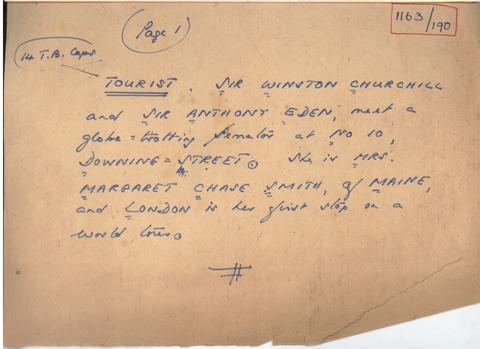 (Page 1)
1163/190
14 T.B. Caps
TOURIST. SIR WINSTON CHURCHILL
and SIR ANTHONY EDEN, meet a
globe=trotting Senator at NO 10,
DOWNING=STREET. She is MRS.
MARGARET CHASE SMITH, of MAINE,
and LONDON is her first stop on a
world tour.